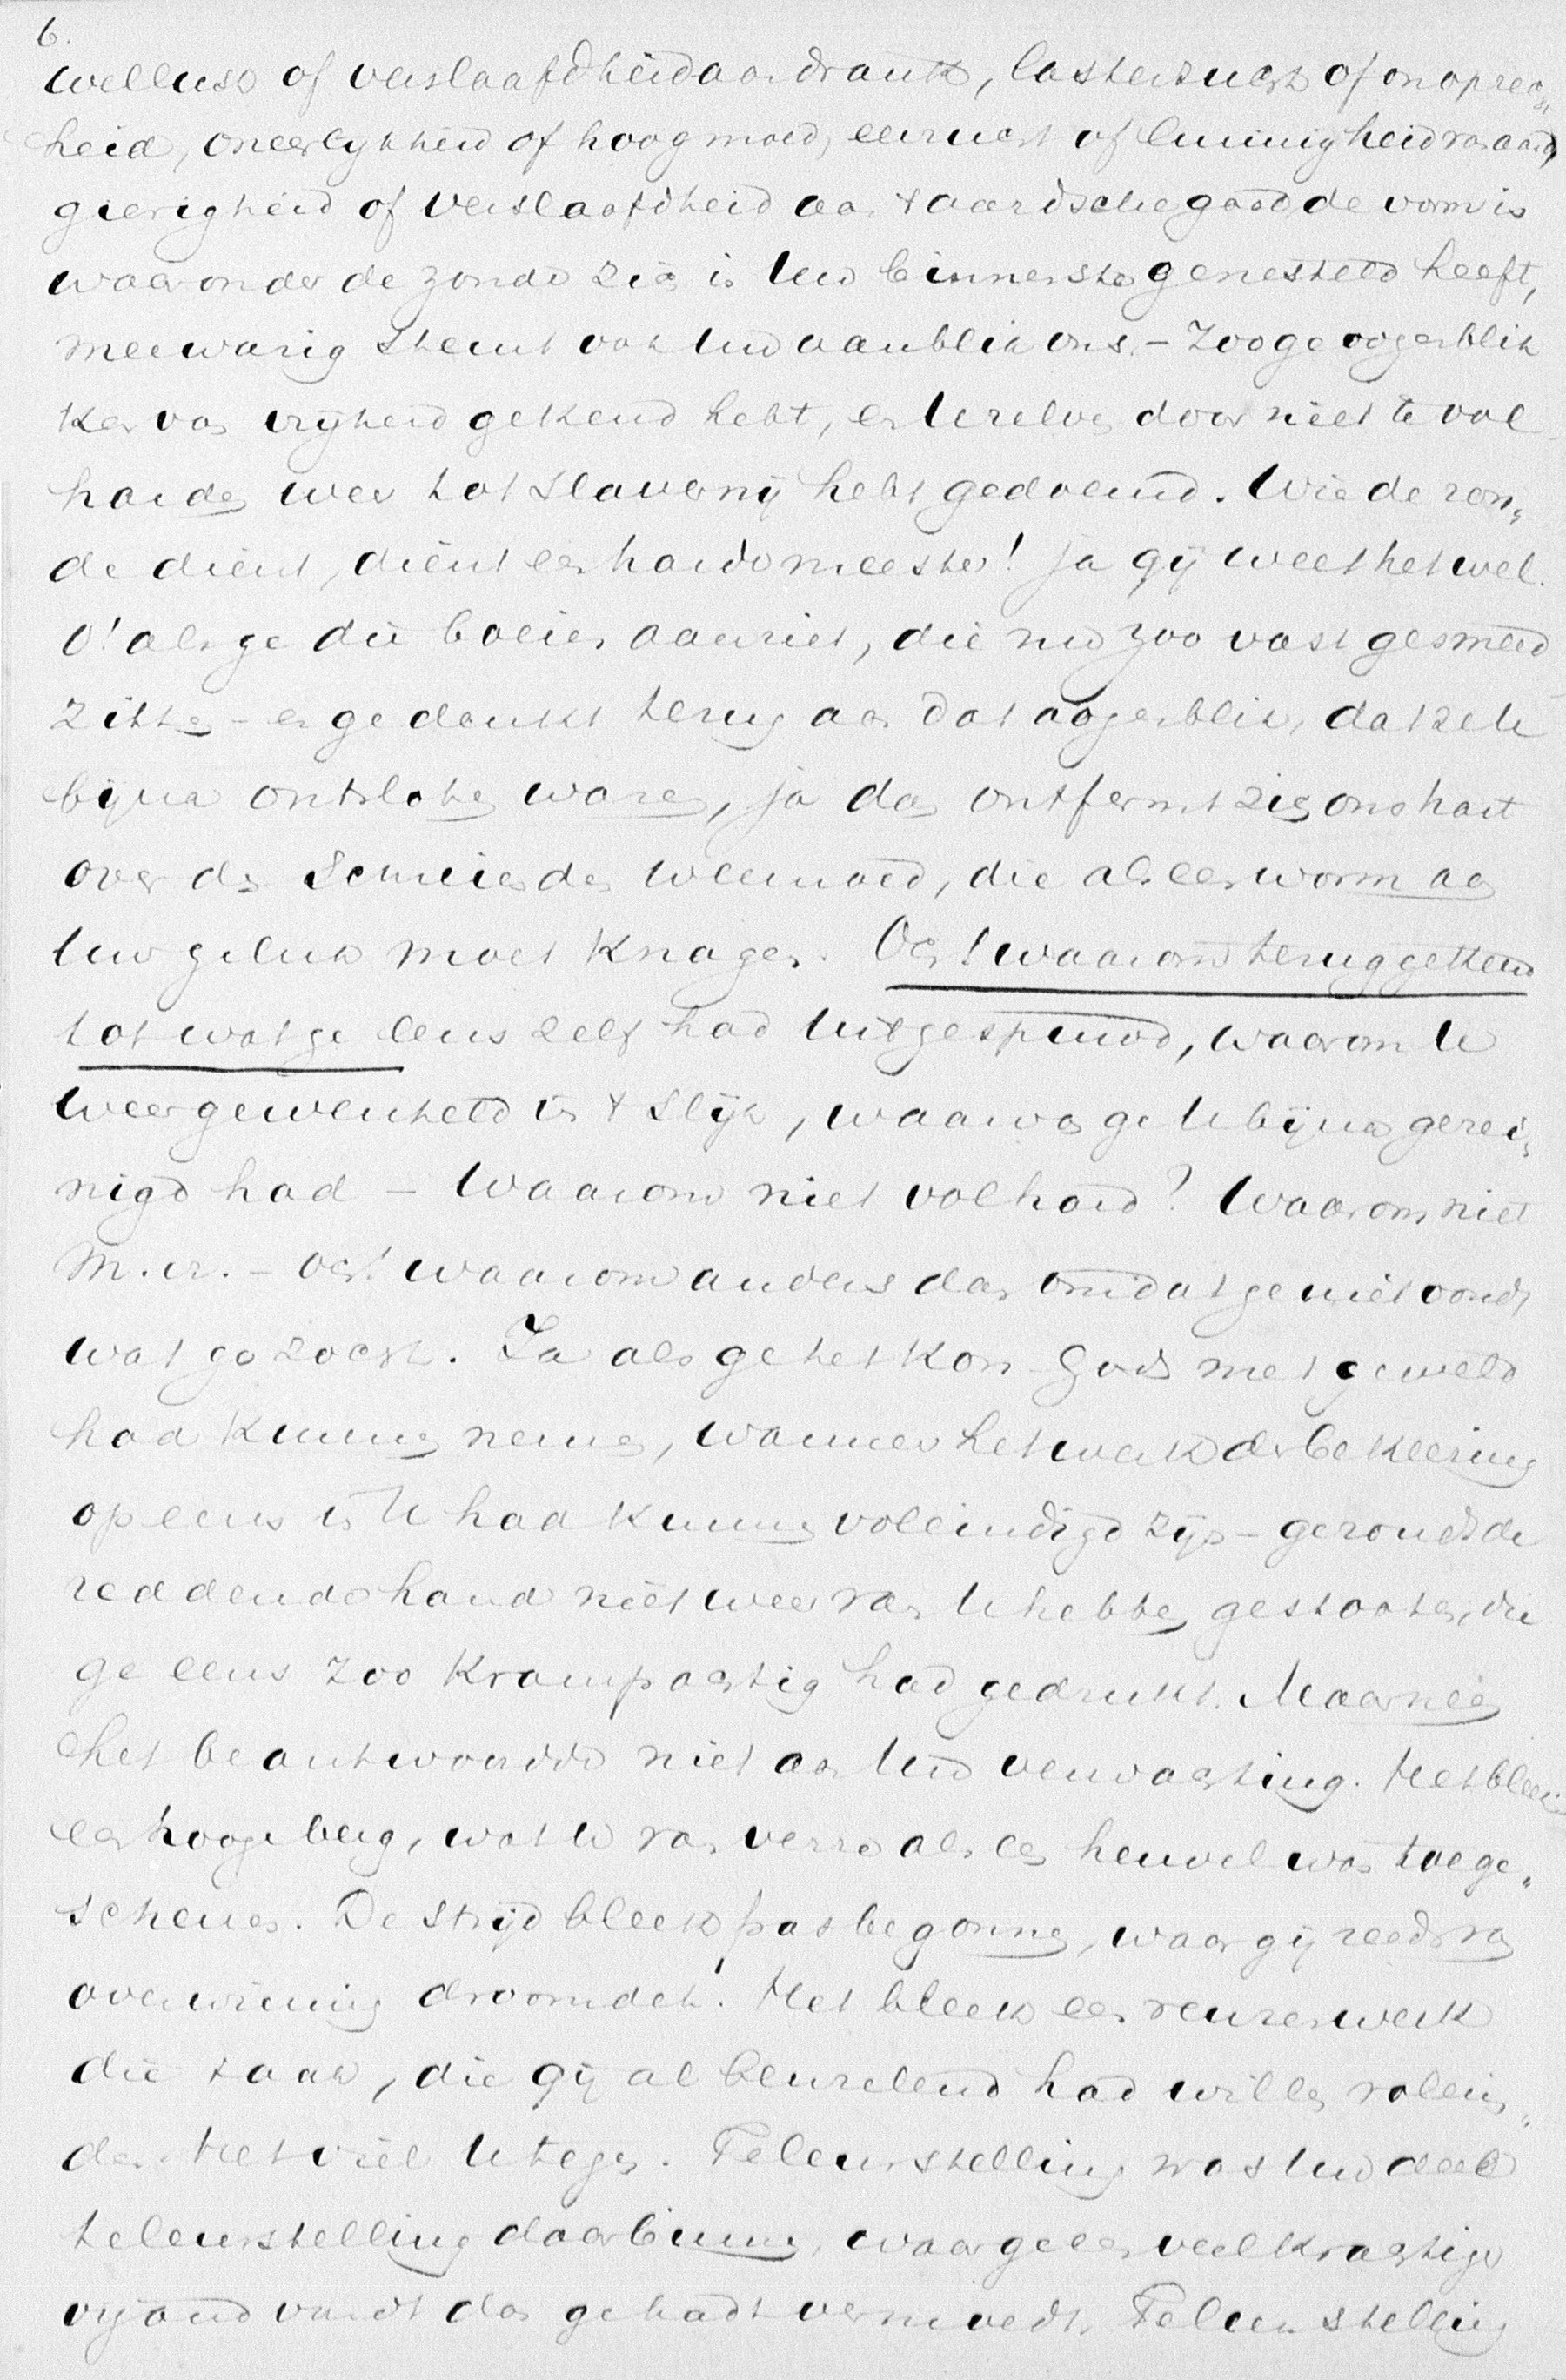 6.
wellust of verslaafdheid aan drank, lasterzucht of onoprecht„
heid, oneerlijkheid of hoogmoed, eerzucht of luimigheid van aard,
gierigheid of verslaafdheid aan 't aardsche goed, de vorm is
waaronder de zonde zich in Uw binnenste genesteld heeft,
meewarig stemt ook Uw aanblik ons, – zoo ge oogenblik
ken van vrijheid gekend hebt, en U zelven door niet te vol
harden weer tot slavernij hebt gedoemd. Wie de zon„
de dient, dient een harde meester! Ja gij weet het wel.
O! als ge die boeien aanziet, die nu zoo vast gesmeed
zitten – en ge denkt terug aan dat oogenblik, dat ze U
bijna ontsloten waren, ja dan ontfermt zich ons hart
over den schreienden weemoed, die als een worm aan
Uw geluk moet knagen. Och! waarom teruggekeerd
tot wat ge eens zelf had uitgespuwd, waarom U
weer gewenteld in 't slijk, waarvan ge U bijna gerei„
nigd had – Waarom niet volhard? Waarom niet
M. vr. – Och! waarom anders dan omdat ge niet vondt
wat ge zocht. Ja als ge het Kon. Gods met geweld
had kunnen nemen, wanneer het werk der bekeering
opeens in U had kunnen voleindigd zijn – ge zoudt de
reddende hand niet weer van U hebben gestooten, die
ge eens zoo krampachtig had gedrukt. Maar neen
het beantwoordde niet aan Uw verwachting. Het bleek
een hooge berg, wat U van verre als een heuvel was toege„
schenen. De strijd bleek pas begonnen, waar gij reeds van
overwinning droomdet! Het bleek een reuzenwerk
die taak, die gij al beuzelend had willen volein„
den. Het viel U tegen. Teleurstelling was Uw deel
teleurstelling daarbinnen, waar ge een veel krachtiger
vijand vondt dan ge hadt vermoedt. Teleurstelling